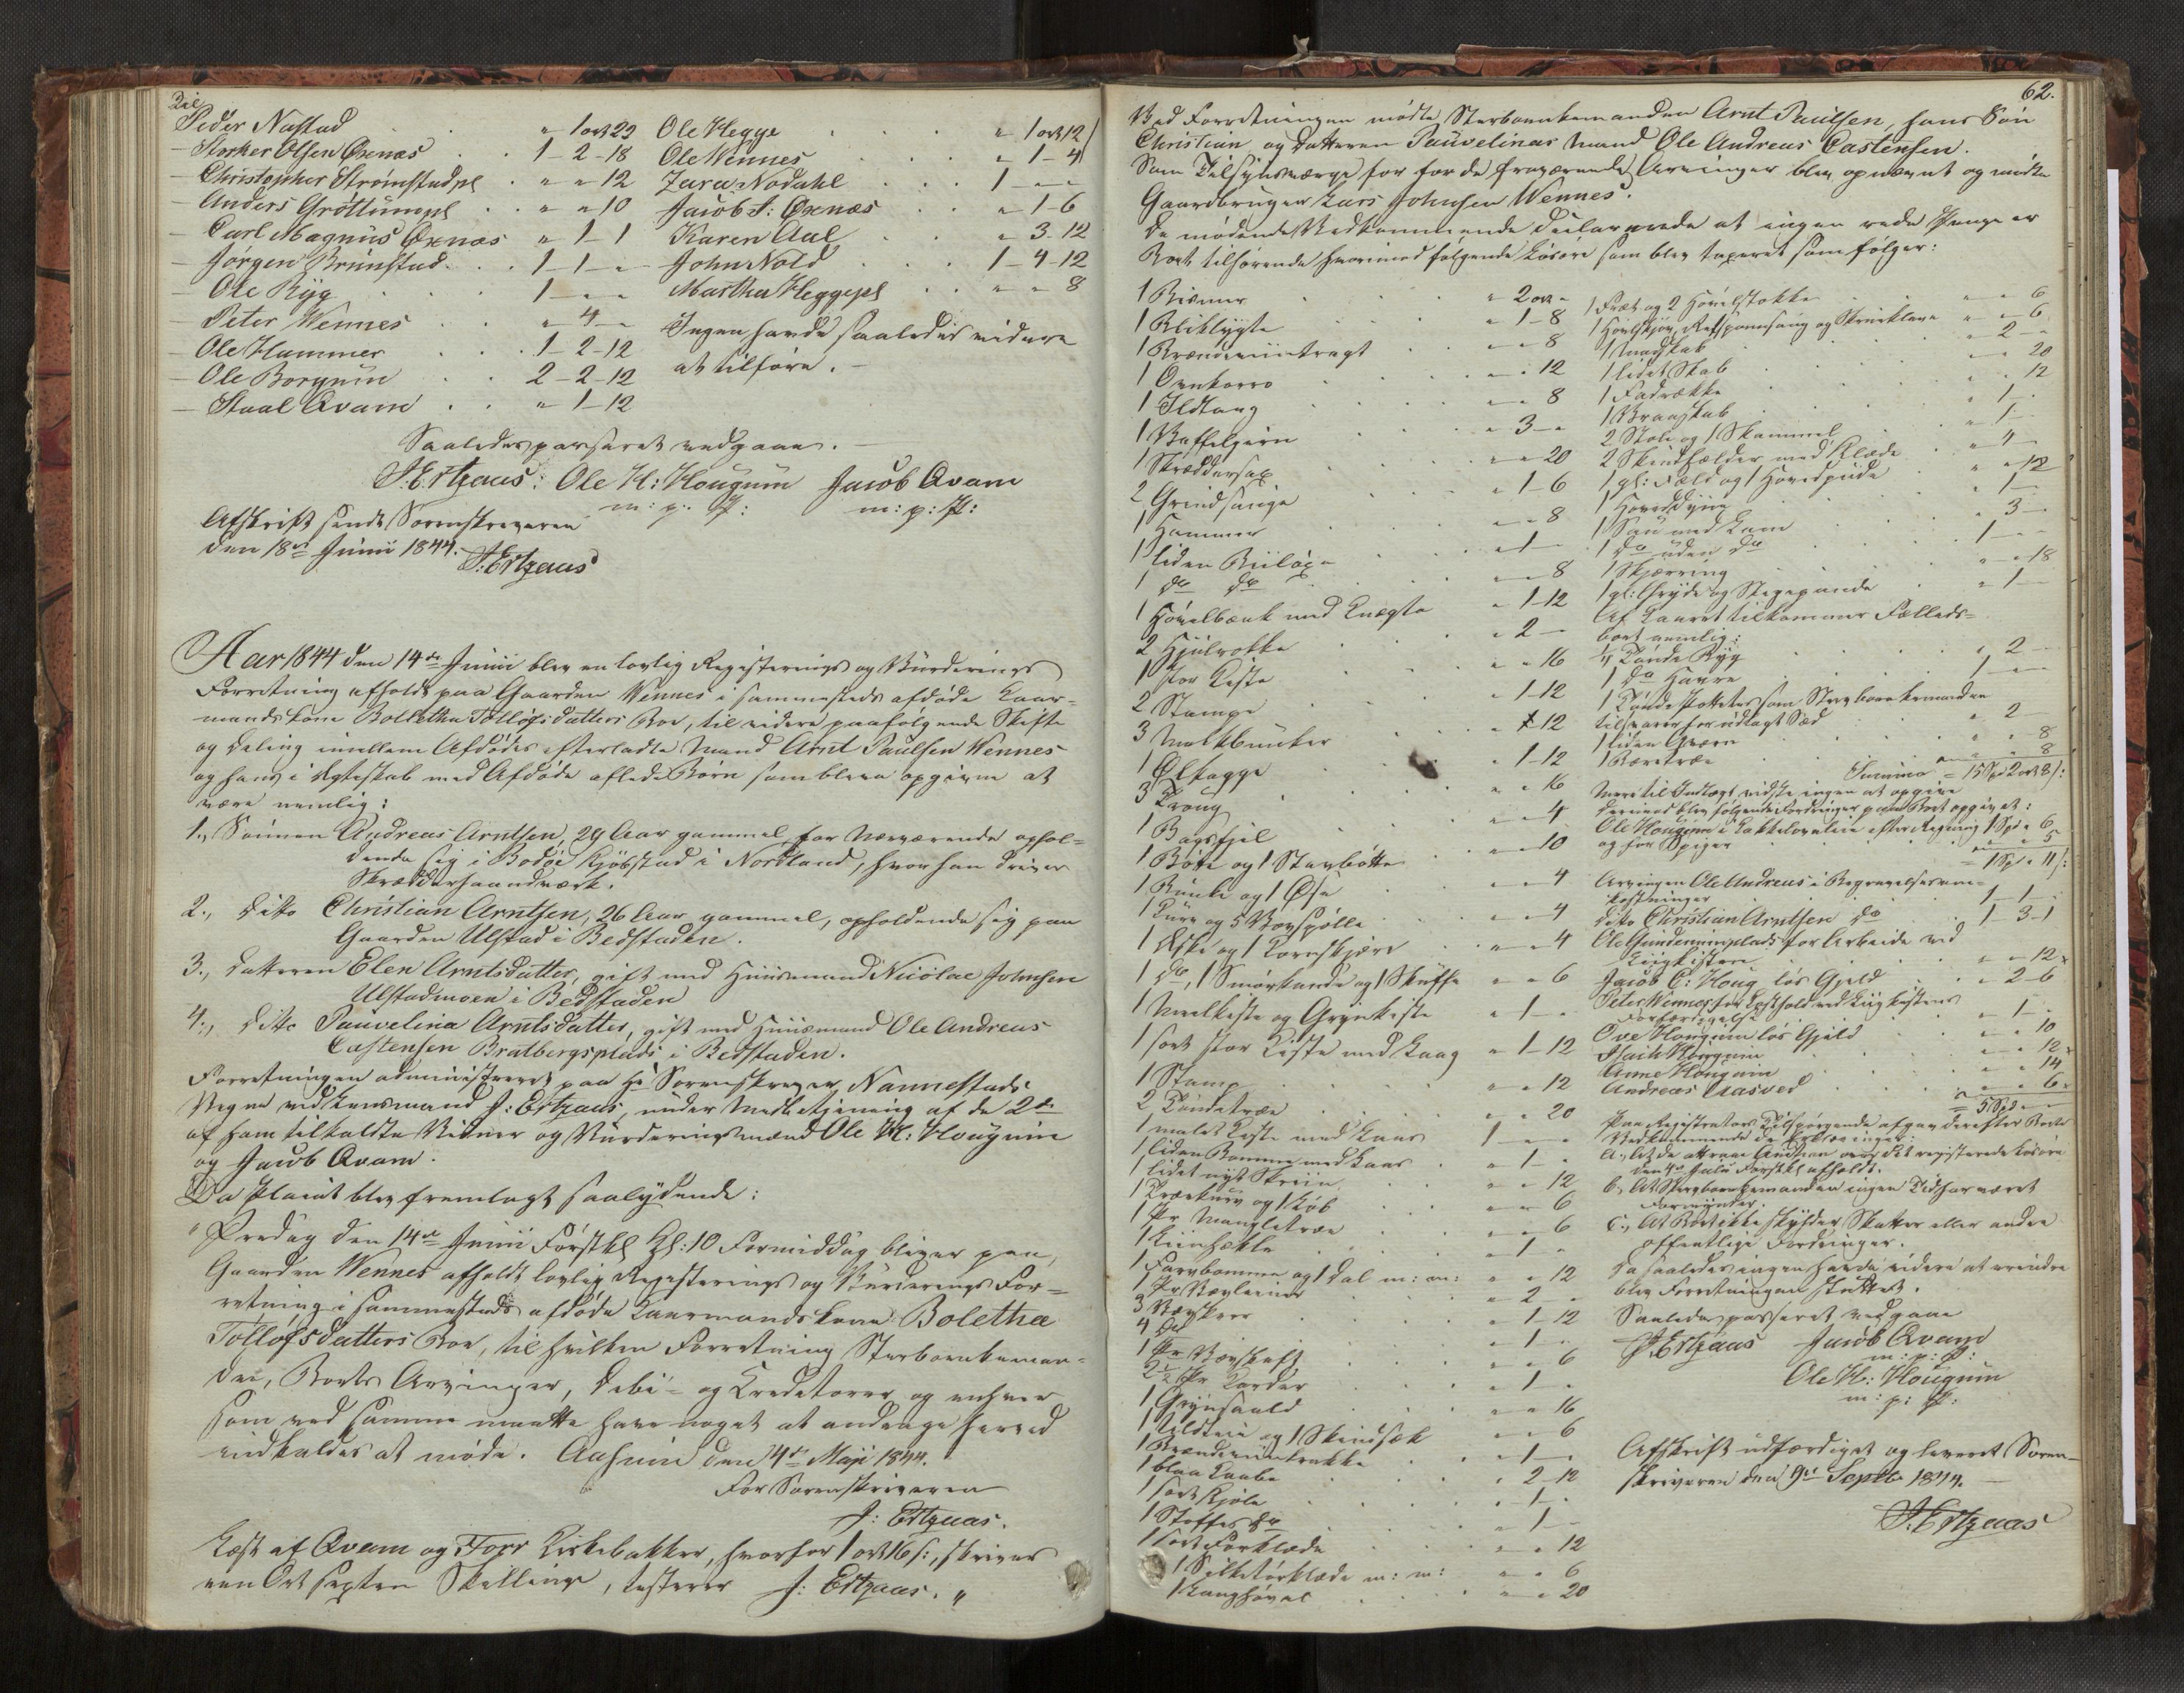 Til
Peder Nastad . . " 1 ort 29
- Storker Olsen Øxnæs . . 1-2-18
- Christopher Strømstadpl . " " 12
- Anders Grøttumpl . . " " 10
- Carl Magnus Øxnæs " 1-1
- Jørgen Brunstad . . 1-1-"
- Ole Ryg . . . 1-"-"
- Peter Wennes . . " 4-"
- Ole Hammer . . . 1-2-12
- Ole Borgum . . 2-2-12
- Staal Qvam . . " 1-12
Ole Hegge . . . " 1 ort 12
Ole Wennes . . . " 1-4
Zara Nodahl . . . 1-"-"
Jacob J: Øxnæs . . " 1-6
Karen Aal . . " 3-12
John Nold . . . 1-4-12
Martha Heggepl . . " " 8
Ingen havde saaledes videre
at tilføre. -
Saaledes passeret vedgaaer. -
J. Ertzaas: Ole H: Hougum Jacob Qvam
m: p: P: m: p: P:
Afskrift sendt Sorenskriveren
den 18de Junii 1844. J. Ertzaas
Aar 1844 den 14de Junii blev en lovlig Registrerings og Vurderings
Forretning afholdt paa Gaarden Wennes i sammesteds afdøde Kaar-
mandskone Bolletha Tølløfsdatters Boe, til videre paafølgende Skifte
og Deling imellem Afdødes efterladte Mand Arnt Paulsen Wennes
og hans i Ægteskab med Afdøde aflede Børn som bleve opgivne at
være nemlig:
1., Sønnen Andreas Arntsen, 29 Aar gammel, for Nærværende ophol-
dende sig i Bodøe Kjøbstad i Nordland, hvor han driver
Skrædderhaandværk.
2., Ditto Christian Arntsen, 26 Aar gammel, opholdende sig paa
Gaarden Ulstad i Bedstaden.
3., Datteren Elen Arntsdatter, gift med Huusmand Nicolae Johnsen
Ulstadmoen i Bedstaden
4., Ditto Pauvelina Arntsdatter, gift med Huusmand Ole Andreas
Castensen Bratbergsplads i Bedstaden.
Forretningen administreret paa Hr Sorenskriver Nannestads
Vegne ved Lensmand J: Ertzaas, under Medbetjening af de 2de
af ham tilkaldte Vidner og Vurderingsmænd Ole H: Hougum
og Jacob Qvam.
Da Placat blev fremlagt saalydende:
"Fredag den 14de Junii Førstkl Kl: 10 Formiddag bliver paa
Gaarden Wennes afholdt lovlig Registrerings og Vurderings For-
retning i sammesteds afdøde Kaarmandskone Boletha
Tølløfsdatters Boe, til hvilken Forretning Stervboenkeman-
den, Boets Arvinger, Debi- og Creditorer og enhver
som ved samme maatte have noget at andrage herved
indkaldes at møde. Aasum den 4de Maji 1844.
For Sorenskriveren
J: Ertzaas.
Læst af Qvam og For Kirkebakker, hvorfor 1 ort 16 s:, skriver
een Ort sexten Skilling, testerer J: Ertzaas. "
62.
Ved Forretningen mødte Stervboenkemanden Arnt Paulsen, hans Søn
Christian og Datteren Pauvelinas Mand Ole Andreas Castensen.
Som Tilsynsværge for for de fraværende Arvinger blev opnævnt og mødte
Gaardbruger Lars Johnsen Wennes.
De mødende Vedkommende declarerede at ingen rede Penge er
Boet tilhørende hvorimod følgende Løsøre som blev taxeret som følger:
1 Bismer . . " 2 ort "
1 Bliklygte . . " 1-8
1 Brændeviintragt . . " " 8
1 Ovnkorro . . " " 12
1 Ildtang . . " " 8
1 Vaffeljern . . " 3-"
1 Skræddersax . . " " 20
2 Grindsauge . . " 1-6
1 Hammer . . " " 8
1 liden Biiløx . . " 1-
1 do do . . " " 8
1 Høvelbænk med Knægte " 1-12
2 Hjulrokke . . " 2-
1 stor Kiste . . " " 16
2 Stampe . . " 1-12
3 Melkbunker . . " 12
1 Øltagge . . " 1-12
3 Traug . . " " 16
1 Bagsfjel . . " " 4
1 Bøtte og 1 Stavbøtte . . " " 10
1 Bunke og 1 Øse . . " " 4
1 Kurv og 5 Vævspølle . . " " 4
1 Æske og 1 Tarnskjære . . " " 4
1 do, 1 Smørkande og 1 Skuffe " " 6
1 Meelkiste og Grynkiste " 1-"
1 sort stor Kiste med Laag " 1-12
1 Stamp . . " " 12
2 Tøndetræe . . " " 20
1 malet Kiste med Laas 1-"-"
1 liden Bomme med Laas " 1-"
1 lidet nyt Skriin . . " " 12
1 Trækurv og 1 Løb . . " " 6
1 Pr Mangletræe . . " " 6
1 Liinhækle . . " 1-"
1 Farvbomme og 1 Dal m: m: " " 12
1 Pr Bøxlenner . . " 2-"
3 Vævskeer . . " 1-12
4 do . . " 1-
1 Pr Vævskaft . . " " 6
2 1/2 Pr Karder . . " 1-
1 Grynsaald . . " " 16
1 Uldteie og 1 Skindsæk " " 6
1 Brændeviintrakke . . " 1-
1 blaa Kaabe . . " 2-12
1 sort Kjole . . " 1-
1 Stoffes do . . " 1-
1 sort Forklæde . . " " 12
1 Silketørklæde m: m: " " 6
1 Langhøvel . . " " 20
1 Fræs og 2 Høvelstokke . . " " 6
1 Høvelskjør, Refspomsaug og Skrueklave " " 6
1 Madskab . . " 2-
1 lidet Skab . . " " 20
1 Fadrække . . " " 12
1 Vraaskab . . " 1-
2 Stole og 1 Skammel . . " 1-
2 Skindfælder med Klæde . . " 4-
1 gl: Fæld og 1 Hovedpude . . " " 12
1 Hoveddyne . . " 1-
1 Sau med Lam . . " 3-
1 do uden do . . 1-"
1 Skjærring . . " " 18
1 gl: Gryde og Stegepande . . " 1-
Af Kaaret tilkommer Fælleds-
boet nemlig:
1/1 Tønde Byg . . " 2-
1 do Havre . . 1-"
1 Tønde Potetes som Stervboenkemanden
tilsvarer for udlagt Sæd . . " 2-
1 liden Qværn . . " " 8
1 Bæretræe . . " " 8
Summa = 15 Spd 2 ort 8 s:
Mere til Indtægt vidste ingen at opgive
Derimod blev følgende Fordringer paa Boet opgivet:
Ole Hougum i Kakkelovnleie efter Regning 1 Spd " 6
og for Spiger . . " " 5
= 1 Spd " 11 s:
Arvingen Ole Andreas i Begravelsesom-
kostninger . . 1-1-
Ditto Christian Arntsen do . . 1-3-1
Ole Gundermoplads for Arbeide ved
Liigkisten . . " " 12
Jacob C: Houg løs Gjeld . . " 2-6
Peter Wennes for Kosthold ved Liigkistens
Forfærdigelse . . " 1-
Ove Hougum løs Gjeld . . " " 10
Hougum . . " " 12
Anne Hougum . . " " 14
Andreas Aasved . . " " 6
= 5 Spd " "
Paa Registrators Tilspørgende afgav derefter Boets
Vedkommende Erklæringer:
a., At de attraae Auction over det registrerede Løsøre
den Julii Førstkl afholdt.
b, At Stervboenkemanden ingen Tid har været
Formynder.
c., At Boet ikke skylder Skatter eller andre
offentlige Fordringer.
Da saaledes ingen havde videre at erindre
blev Forretningen sluttet.
Saaledes passeret vedgaaer
J. Ertzaas Jacob Qvam
m: p: P:
Ole H: Hougum
m: p: P:
Afskrift udfærdiget og leveret Soren-
skriveren den 9de Septbr 1844. -
J. Ertzaas